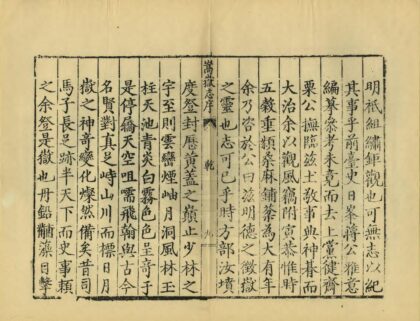 明祇組繡鉅觀也可無志以紀
其事乎前臺史日峯蔣公雅意
編摹叅考未竟而去上黨健齋
栗公撫臨玆土敎事與神而
大治余以觀風竊附寅恭惟時
五穀重穎桑麻鋪棻為大有年
余乃咨於公曰玆明德之徵嶽
之靈也志可已乎時方部汝墳
嵩嶽志序 乾 九
度登封歷黃蓋之巔止少林之
宇至則雲巒煙岫月洞風林玉
柱天池青炎白霧色色呈奇于
是停天空咀飛翰與古今
名賢對真足峙山川而標日月
嶽之神奇變化燦然備矣昔司
馬子長足跡半天下而史事類
之余登是嶽也丹鉛黼藻日擊